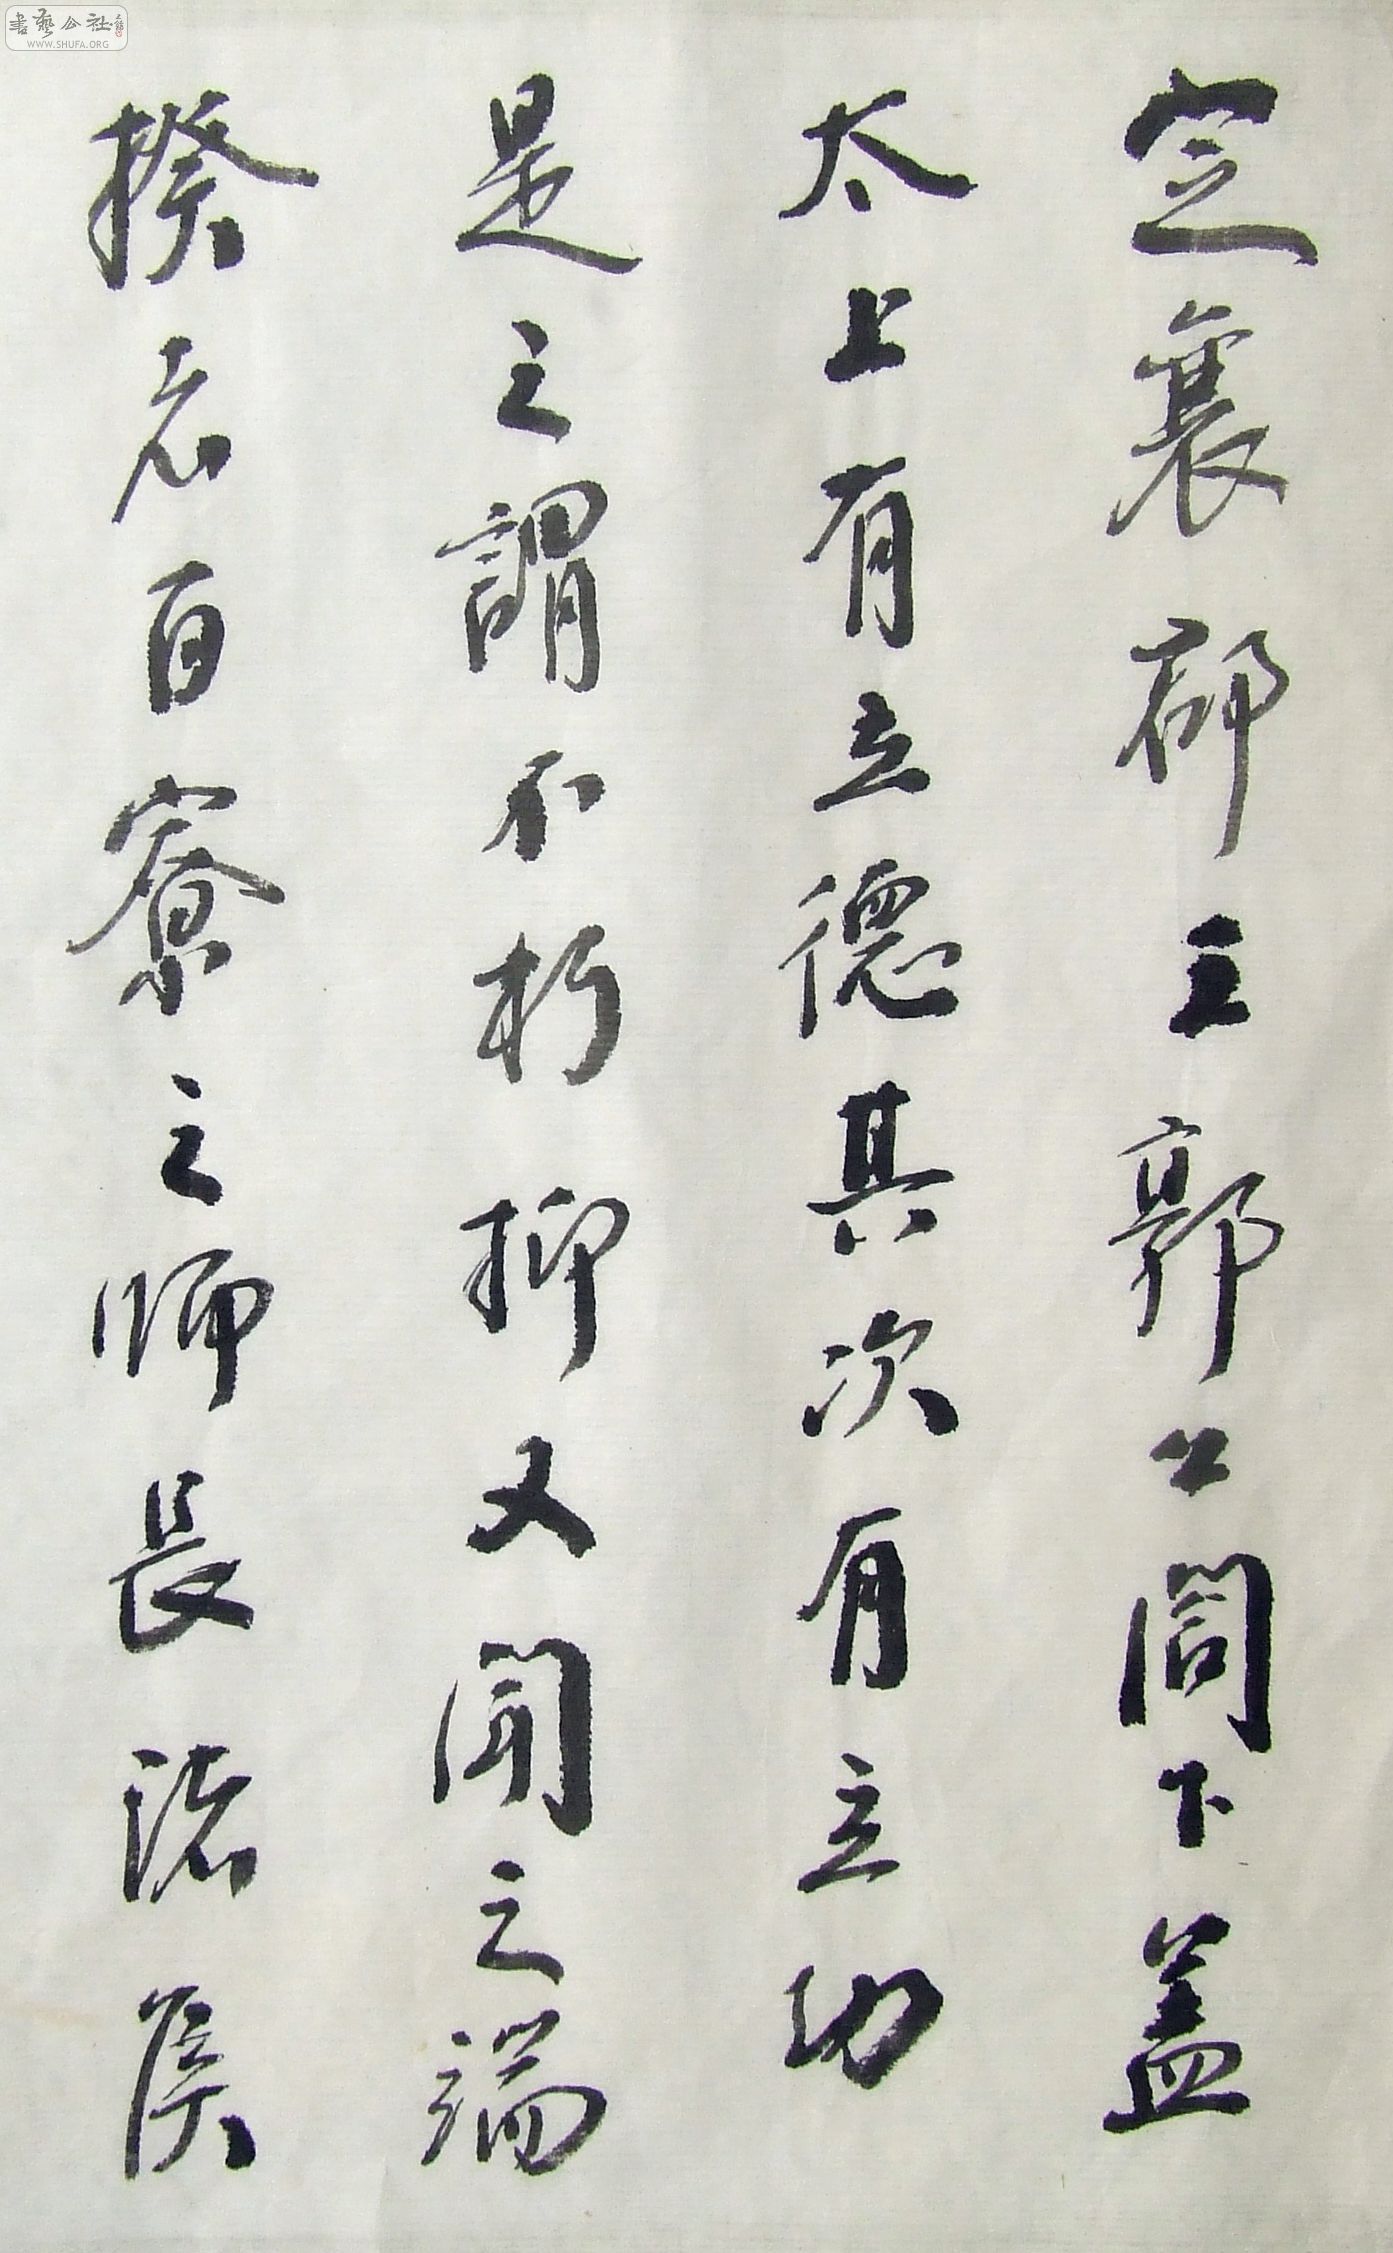 定襄郡王郭公閤下盖
太上有立德其次有立功
是之謂不朽抑又聞之端
揆者百寮之師長諸侯
書藝公社
WWW.SHUFA.ORG